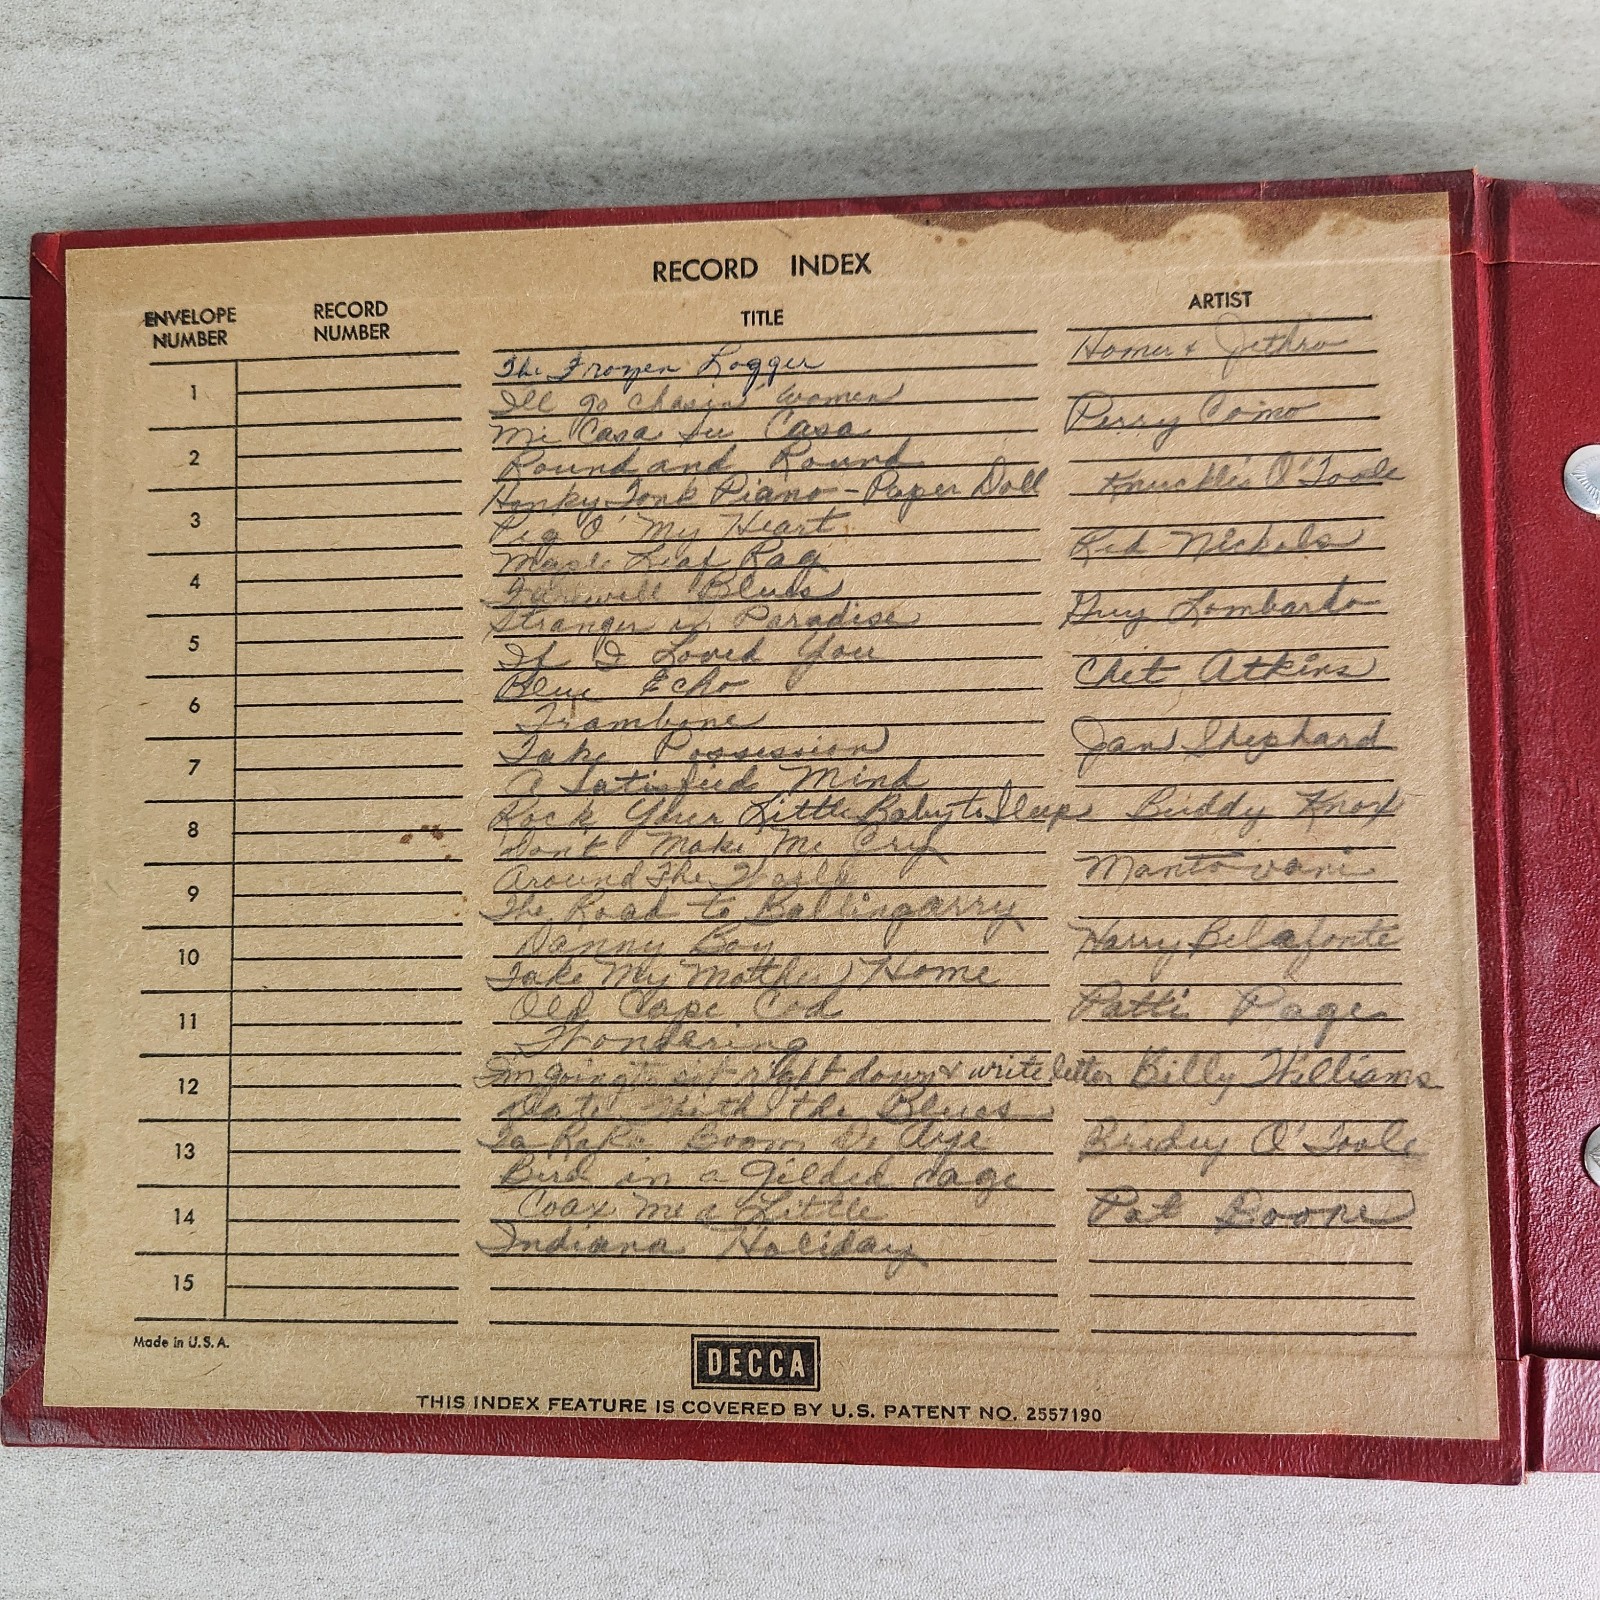 RECORD INDEX
ENVELOPE NUMBER RECORD NUMBER TITLE ARTIST
1 The Frozen Logger Homer & Jethro
Ill go chasin' women
2 Mi Casa Su Casa Perry Como
Round and Round
3 Honky Tonk Piano - Paper Doll Knuckles O'Toole
Peg O' My Heart
4 Maple Leaf Rag Red Nichols
Farewell Blues
5 Stranger in Paradise Guy Lombardo
If I Loved You
6 Blue Echo Chet Atkins
Trambone
7 Take Possession Jan Shephard
A Satisfied Mind
8 Rock Your Little Baby to Sleep Buddy Knox
Dont Make Me Cry
9 Around The World Mantovani
The Road to Ballingarry
10 Danny Boy Harry Belafonte
Take My Mother Home
11 Old Cape Cod Patti Page
Wondering
12 Im going to sit right down & write letter Billy Williams
Date With the Blues
13 Ta Ra Ra Boom De Aye O'Toole
Bird in a Gilded Cage
14 Coax Me a Little Pat Boone
Indiana Holiday
15
Made in U.S.A.
DECCA
THIS INDEX FEATURE IS COVERED BY U.S. PATENT NO. 2557190